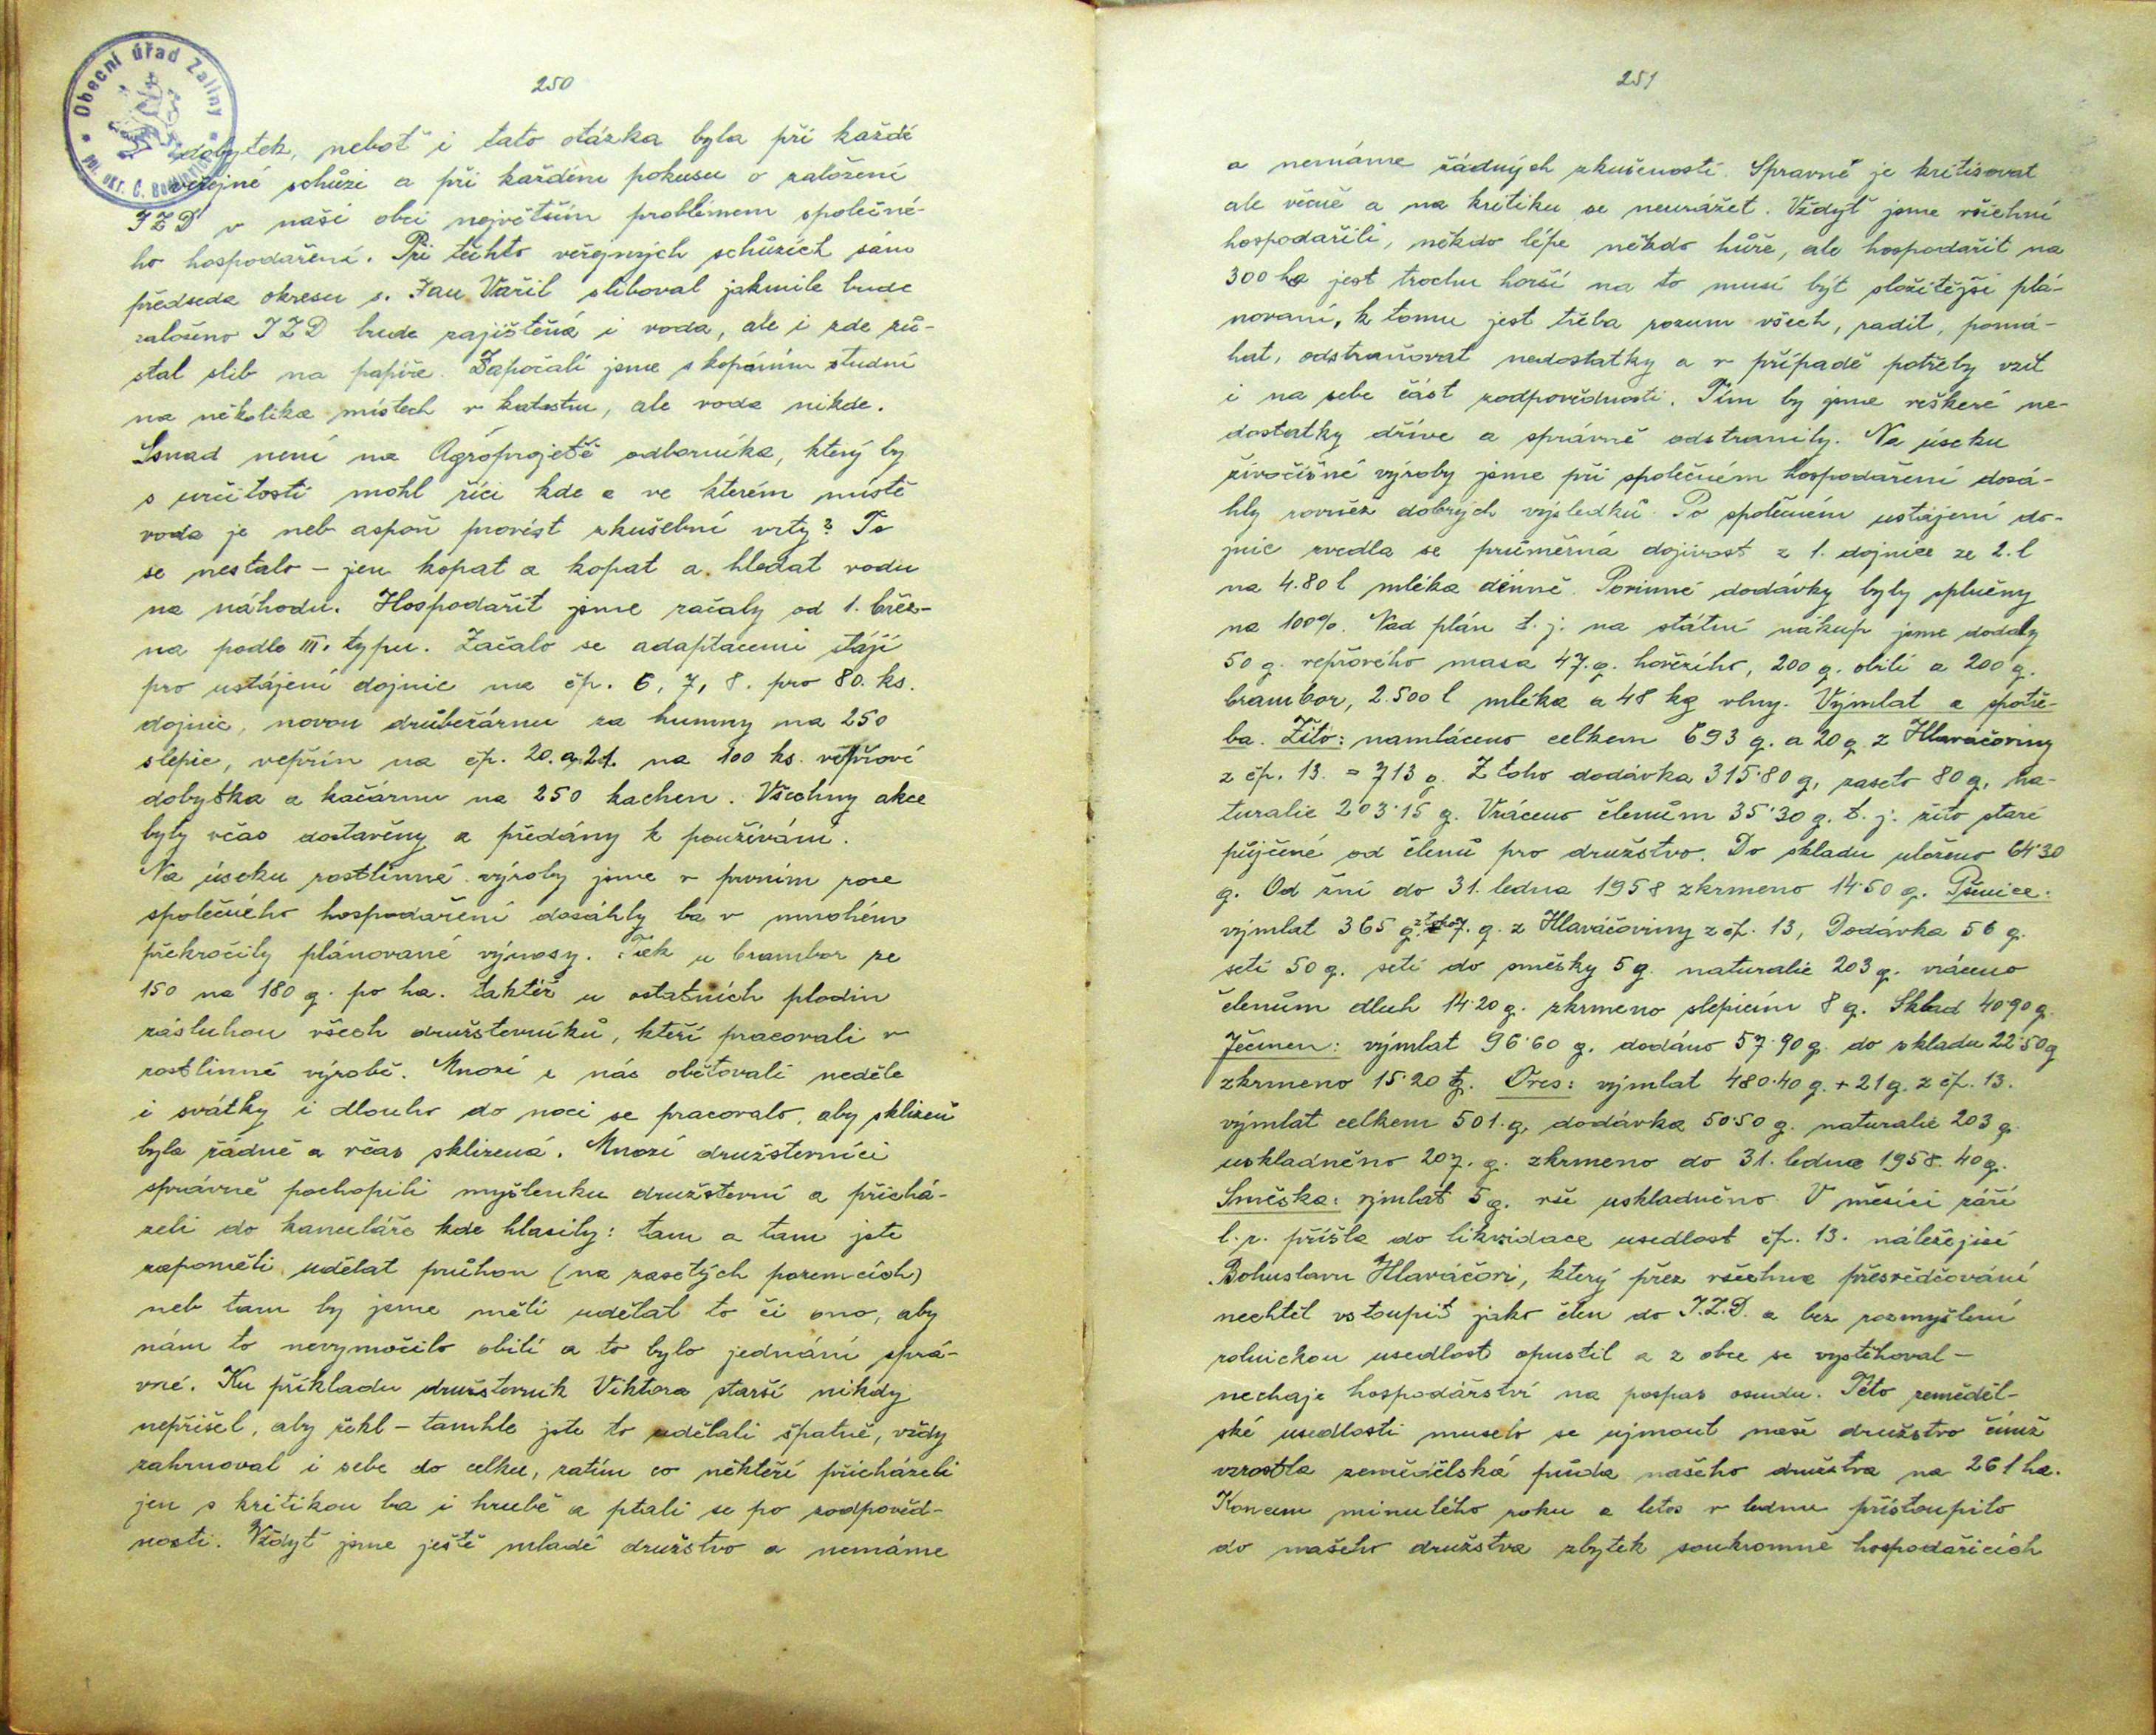 Obecní úřad Zaliny
250
dobytek, neboť i tato otázka byla při každé
veřejné schůzi a při každém pokusu o založení
JZD v naší obci největším problémem společné-
ho hospodaření. Při těchto veřejných schůzích sám
předseda okresu s. Jan Vařil sliboval jakmile bude
založeno JZD bude zajištěná i voda, ale i zde zů-
stal slib na papíře. Započali jsme s kopáním studní
na několika místech v katastru, ale voda nikde.
Ssnad není na Agróprojetě odborníka, který by
s určitostí mohl říci kde a ve kterém místě
voda je neb aspoň provést zkušební vrty? To
se nestalo – jen kopat a kopat a hledat vodu
na náhodu. Hospodařit jsme začaly od 1. břez-
na podle III. typu. Začalo se adaptacemi stájí
pro ustájení dojnic na čp. 6, 7, 8. pro 80. ks.
dojnic, novou drůbežárnu za humny na 250
slepic, vepřín na čp. 20. a 21. na 100 ks. vepřové
dobytka a kačárnu na 250 kachen. Všechny akce
byly včas dostavěny a předány k používání.
Na úseku rostlinné výroby jsme v prvním roce
společného hospodaření dosáhly ba v mnohém
překročily plánované výnosy. Tak u brambor ze
150 na 180 q. po ha. taktéž u ostatních plodin
zásluhou všech družstevníků, kteří pracovali v
rostlinné výrobě. Mnozí z nás obětovali neděle
i svátky i dlouho do noci se pracovalo, aby sklizeň
byla řádně a včas sklizená. Mnozí družstevníci
správně pochopili myšlenku družstevní a přichá-
zeli do kanceláře kde hlasily: tam a tam jste
zapoměli udělat průhon (na zasetých pozemcích)
neb tam by jsme měli udělat to či ono, aby
nám to nevymočilo obilí a to bylo jednání sprá-
vné. Ku příkladu družstevník Viktora starší nikdy
nepřišel, aby řekl – tamhle jste to udělali špatně, vždy
zahrnoval i sebe do celku, zatím co někteří přicházeli
jen s kritikou ba i hrubě a ptali se po zodpověd-
nosti. Vždyť jsme ještě mladé družstvo a nemáme
251
a nemáme řádných zkušeností. Spravně je kritisovat
ale věcně a na kritiku se neurážet. Vždyť jsme všichni
hospodařili, někdo lépe někdo hůře, ale hospodařit na
300 ha jest trochu horší na to musí být složitější plá-
novaní, k tomu jest třeba rozum všech, radit, pomá-
hat, odstraňovat nedostatky a v případě potřeby vzít
i na sebe část zodpovědnosti. Tím by jsme veškeré ne-
dostatky dříve a správně odstranily. Na úseku
živočišné výroby jsme při společném hospodaření dosá-
hly rovněž dobrých výsledků. Po společném ustájení do-
jnic zvedla se průměrná dojivost z 1. dojnice ze 2. l
na 4.80 l mléka denně. Povinné dodávky byly splněny
na 100%. Nad plán t. j. na státní nákup jsme dodaly
50 q. vepřového masa 47. q. hovězího, 200 q. obilí a 200 q.
brambor, 2.500 l mléka a 48 kg vlny. Výmlat a spotře-
ba. Žito: namláceno celkem 693 q. a 20 q. z Hlaváčoviny
z čp. 13. = 713 q. Z toho dodávka 315·80 q, zaseto 80 q, na-
turalie 203·15 q. Vráceno členům 35·30 q. t. j. žito staré
půjčené od členů pro družstvo. Do skladu uloženo 64·30
q. Od žní do 31. ledna 1958 zkrmeno 14·50 q. Pšenice:
výmlat 365 q. z toho 7. q. z Hlaváčoviny z čp. 13, Dodávka 56 q.
setí 50 q. setí do směsky 5 q. naturalie 203 q. vráceno
členům dluh 14·20 q. zkrmeno slepicím 8 q. Sklad 40·90 q.
Ječmen: výmlat 96·60 q. dodáno 57·90 q. do skladu 22·50 q
zkrmeno 15·20 q. Oves: výmlat 480·40 q. + 21 q. z čp. 13.
výmlat celkem 501. q, dodávka 50·50 q. naturalie 203 q.
uskladněno 207. q. zkrmeno do 31. ledna 1958. 40 q.
Směska: výmlat 5 q. vše uskladněno. V měsíci září
l. r. přišla do likvidace usedlost čp. 13. náležející
Bohuslavu Hlaváčovi, který přez všechna přesvědčování
nechtěl vstoupit jako člen do J.Z.D. a bez rozmyšlení
rolnickou usedlost opustil a z obce se vystěhoval –
nechaje hospodářství na pospas osudu. Této zeměděl-
ské usedlosti muselo se ujmout naše družstvo čímž
vzrostla zemědělská půda našeho družstva na 261 ha.
Koncem minulého roku a letos v lednu přistoupilo
do našeho družstva zbytek soukromně hospodařících